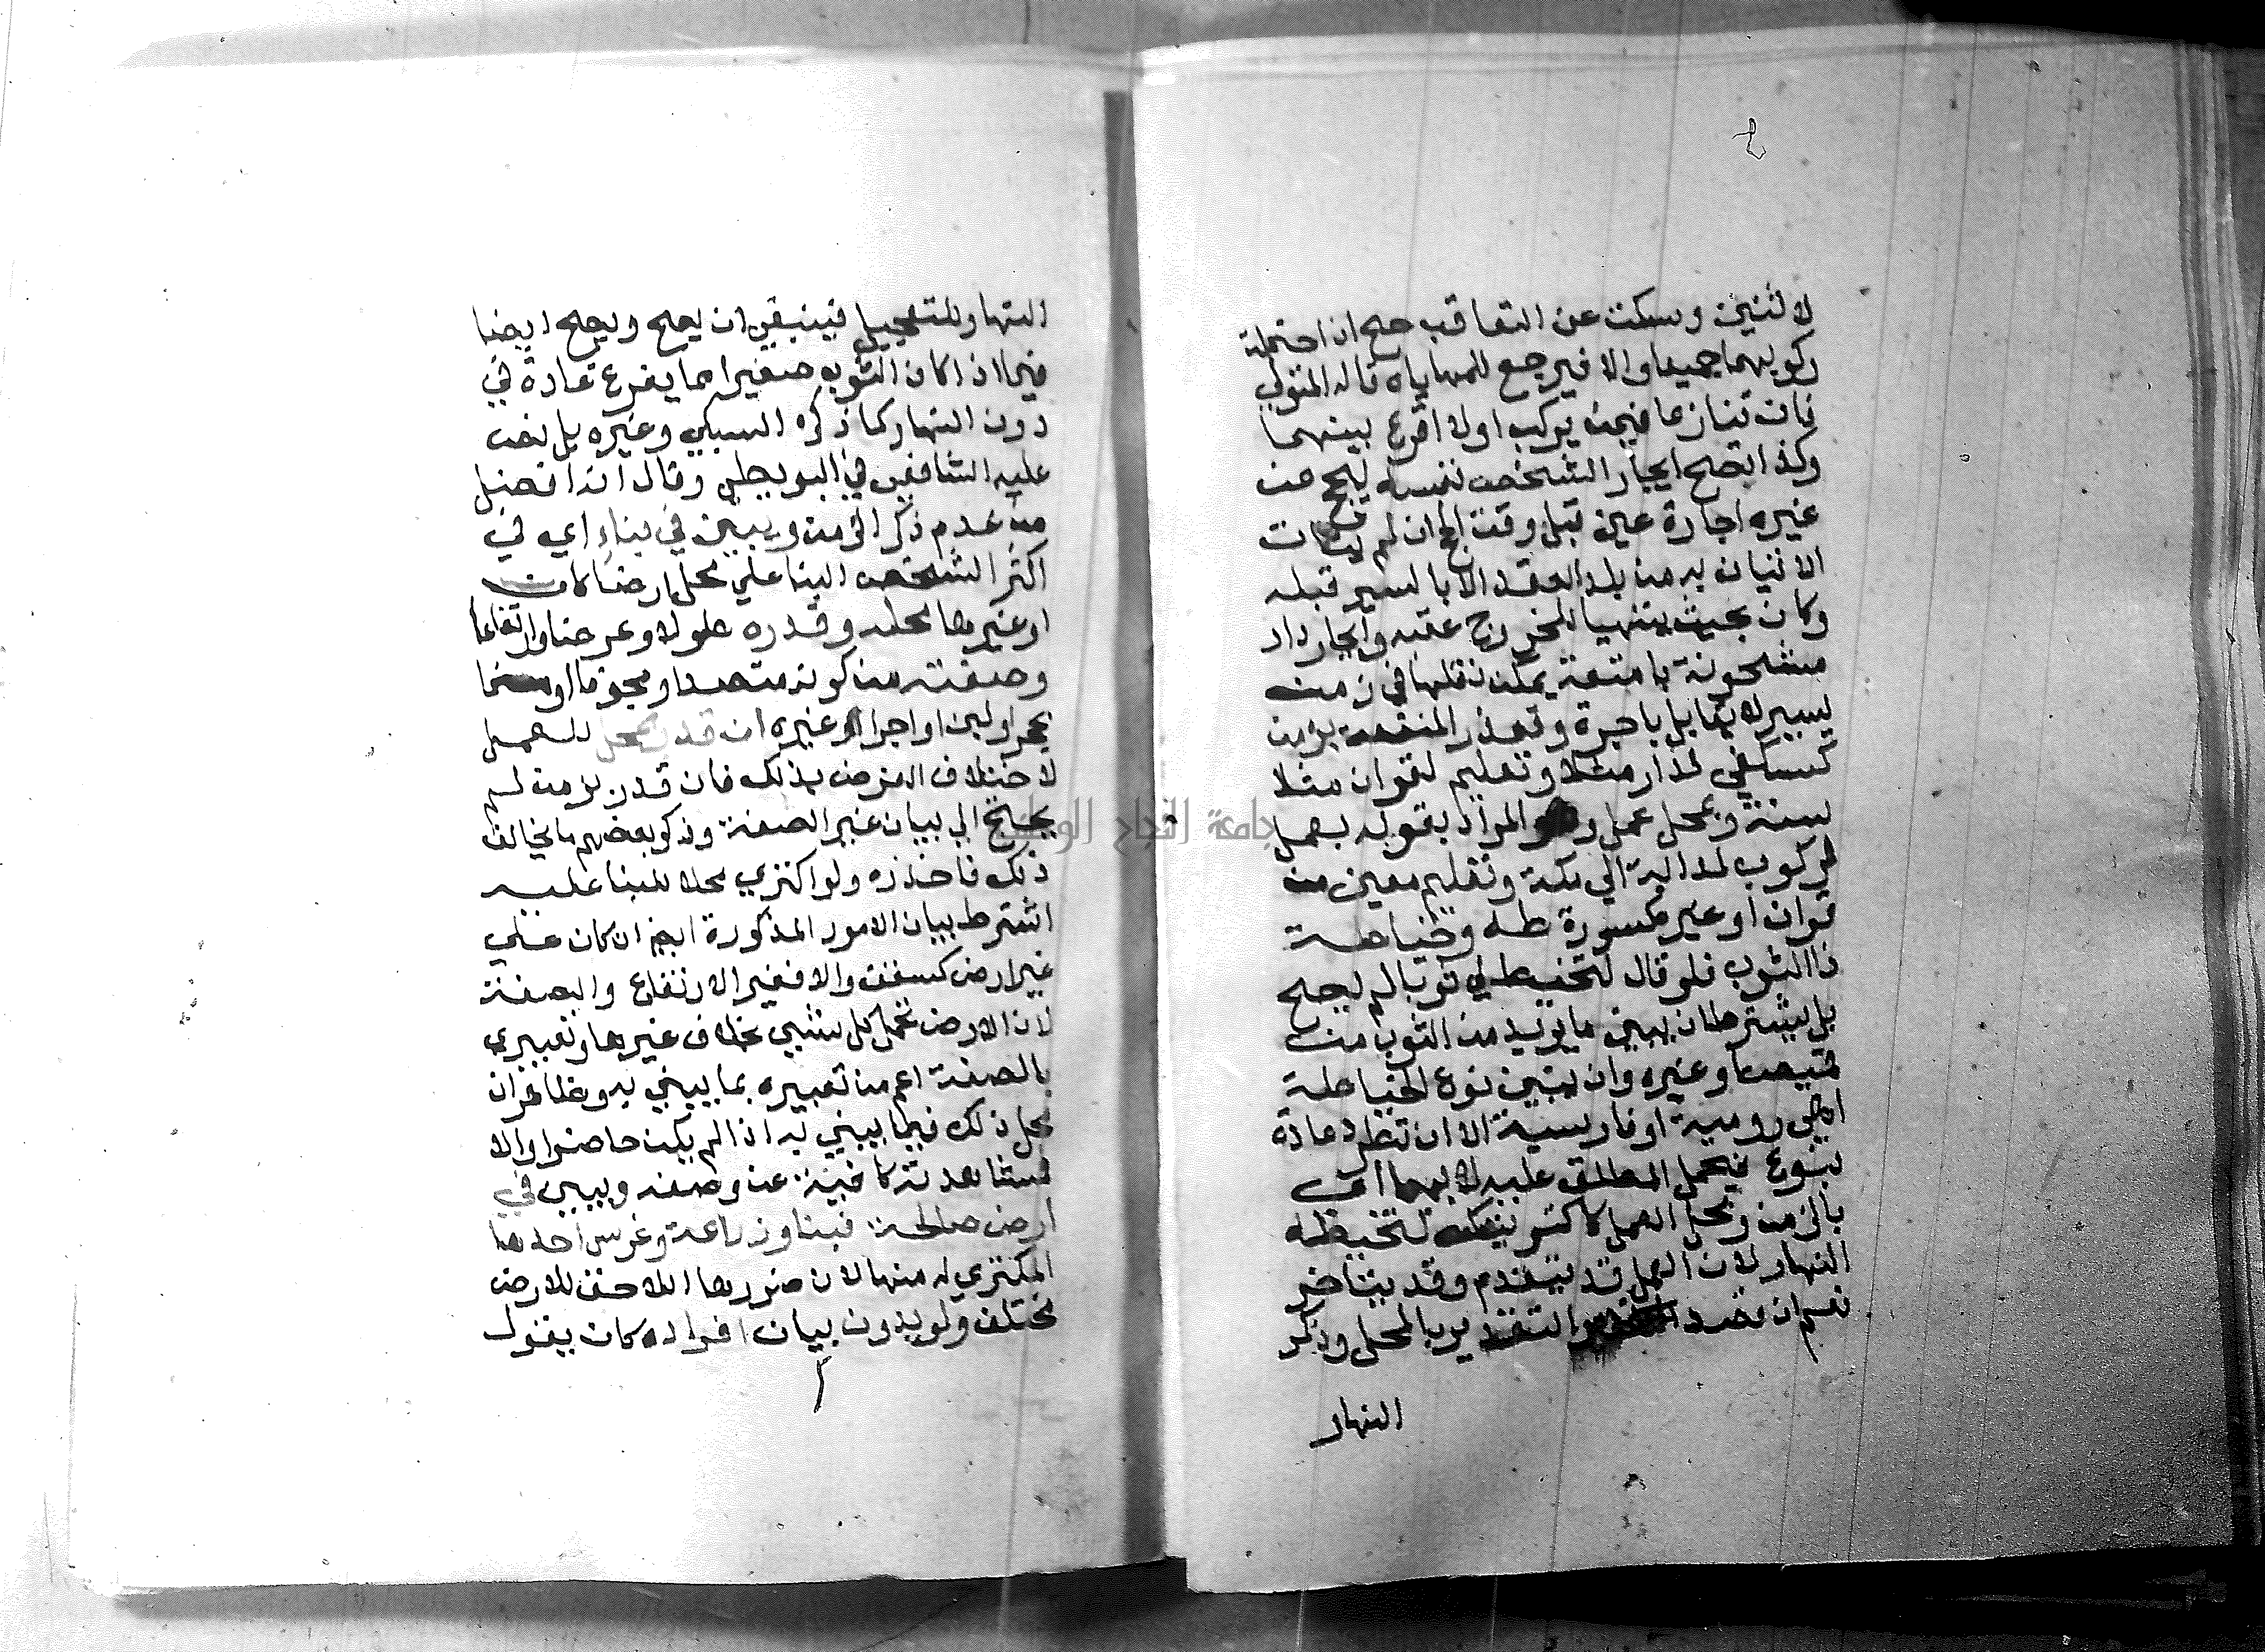 لاثنين وسكت عن التعاقب صح ان احتملت
ركوبهما جميعا والا فيرجع للمهاياه قاله المتولي
فان تنازعا فيمن يركب اولا اقرع بينهما
وكذا يصح ايجار الشخص نفسه ليحج عن
غيره اجارة عين قبل وقت الحج ان لم يتات
الاتيان به من بلد العقد الا بالسير قبله
وكان بحيث يتهيا للخروج عقبه وايجار دار
مشحونة بامتعة يمكن نقلها في زمن
يسير لا يقابل باجرة وتقدر المنفعة بزمن
كسكني لدار مثلا وتعليم لقران مثلا
لسنة وبمحل عمل وهو المراد بقوله بعمل
كركوب لدابة الي مكة وتعليم معين من
قران او غيره كسورة طه وخياطة
ذا الثوب فلو قال لتخيط لي ثوبا لم يصح
بل يشترط ان يبين ما يريد من الثوب من
قميص او غيره وان يبين نوع الخياطة
اهي رومية او فارسية الا ان تطرد عادة
بنوع فيحمل المطلق عليه لا بهما اي
بالزمن ومحل العمل كاكتريتك لتخيطه
النهار لان العمل قد يتقدم وقد يتاخر
نعم ان قصد التقدير بالمحل وذكر
النهار
النهار للتعجيل فينبغي ان يصح ويصح ايضا
فيما اذا كان الثوب صغيرا مما يفرغ عادة في
دون النهار كما ذكره السبكي وغيره بل نص
عليه الشافعي في البويطي وقال انه افضل
من عدم ذكر الزمن ويبين في بناء اي في
اكترا الشخص البنا علي محل ارضا كانت
او غيرها محله وقدره طولا وعرضا وارتفاعا
وصفته من كونه منضدا او مجوفا او مسنما
بحجر او لبن او اجرا او غيره ان قدر بمحل للعمل
لاختلاف الغرض بذلك فان قدر بزمن لم
يحتج الي بيان غير الصفة وذكر بعضهم ما يخالف
ذلك فاحذره ولو اكتري محلا للبنا عليه
اشترط بيان الامور المذكورة ايضا ان كان علي
غير ارض كسقف والا فغير الارتفاع والصفة
لان الارض تحمل كل شيي بخلاف غيرها وتعبيري
بالصفة اعم من تعبيره بما يبيني به وظاهر ان
محل ذلك فيما يبيني به اذا لم يكن حاضرا والا
فمشاهدته كافية عن وصفه ويبين في
ارض صالحة لبنا وزراعة وغرس احدها
المكتري له منها لان ضررها اللاحق للارض
مختلف ولو بدون بيان افراده كان يقول